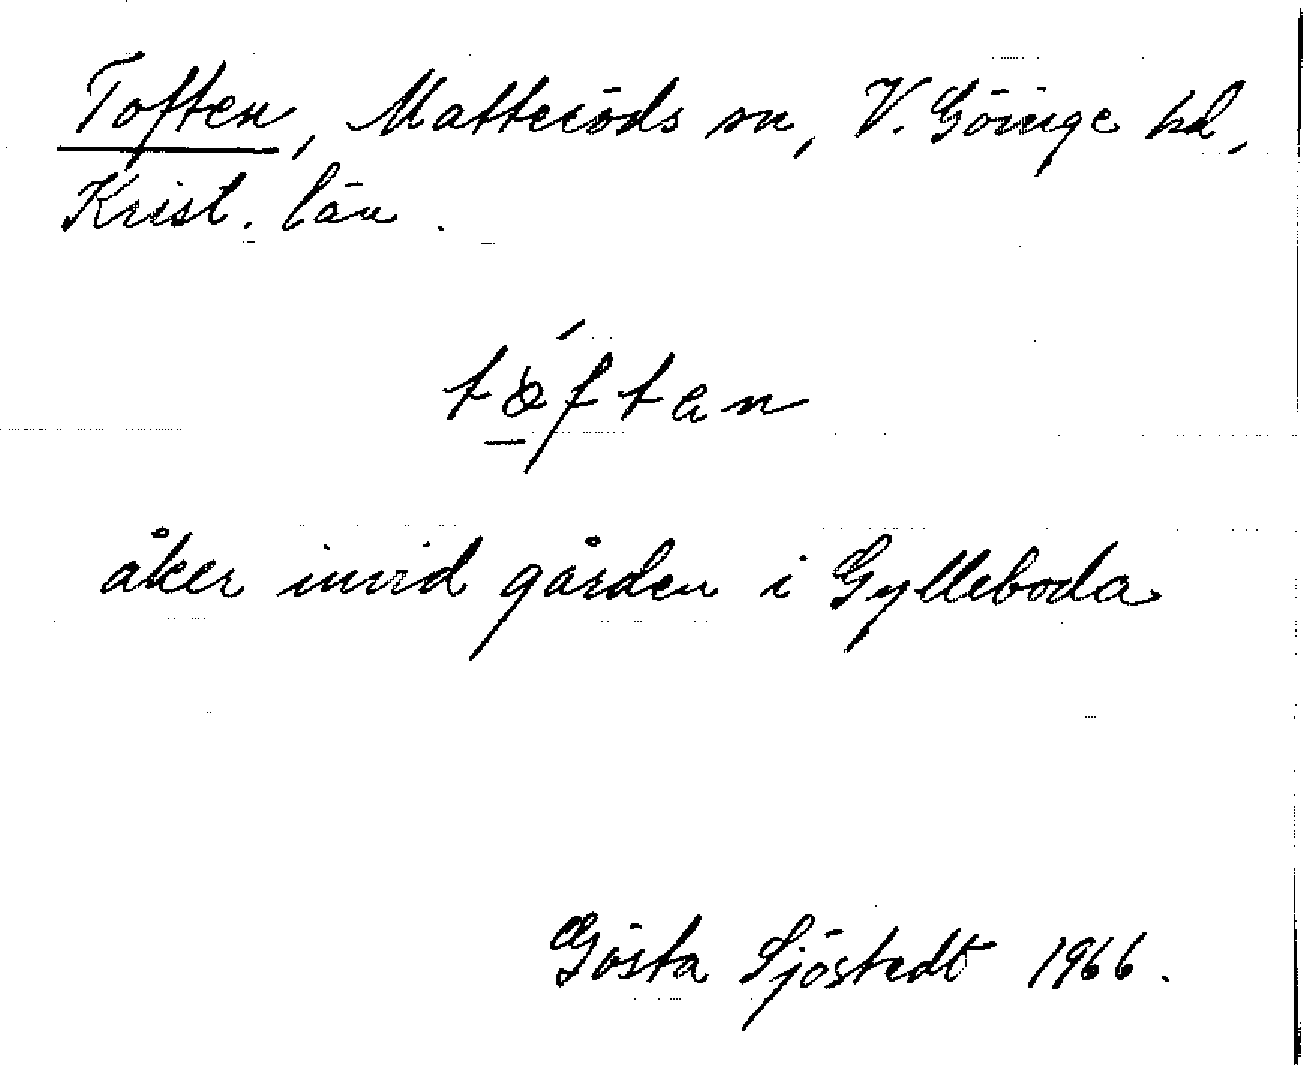 Toften, Matteröds sn, V. Göinge hd,
Krist. län.
tǫ́ftan
åker invid gården i Gylleboda
Gösta Sjöstedt 1966.